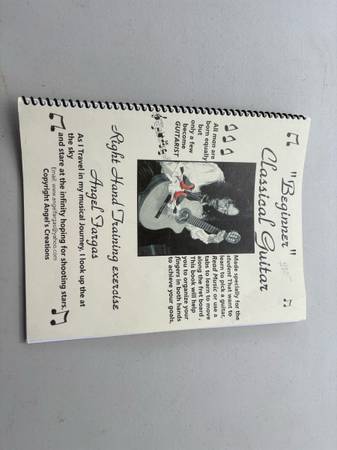 "Beginner"
Classical Guitar
All man are
born equally
but
only a few
become
GUITARIST
Made specially for the
student That want to
learn to pick a guitar,
Read Music or use a
tabs to learn to move
along the fret board ,
This book will help
you to organize your
fingers in both hands
to achieve your goals.
Right Hand Training exercise
Angel Vargas
As I Travel in my musical Journey, I look up the at
the sky
and stare at the infinity hoping for shooting stars.
Copyright Angel's Creations